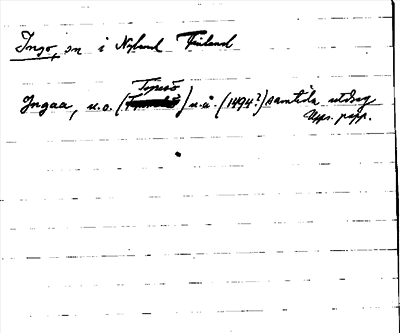 Ingo, sn i Nyland Finland
Topesö
Ingaa, u.o. () u.å. (1494?) samtida utdrag
Upps. papp.